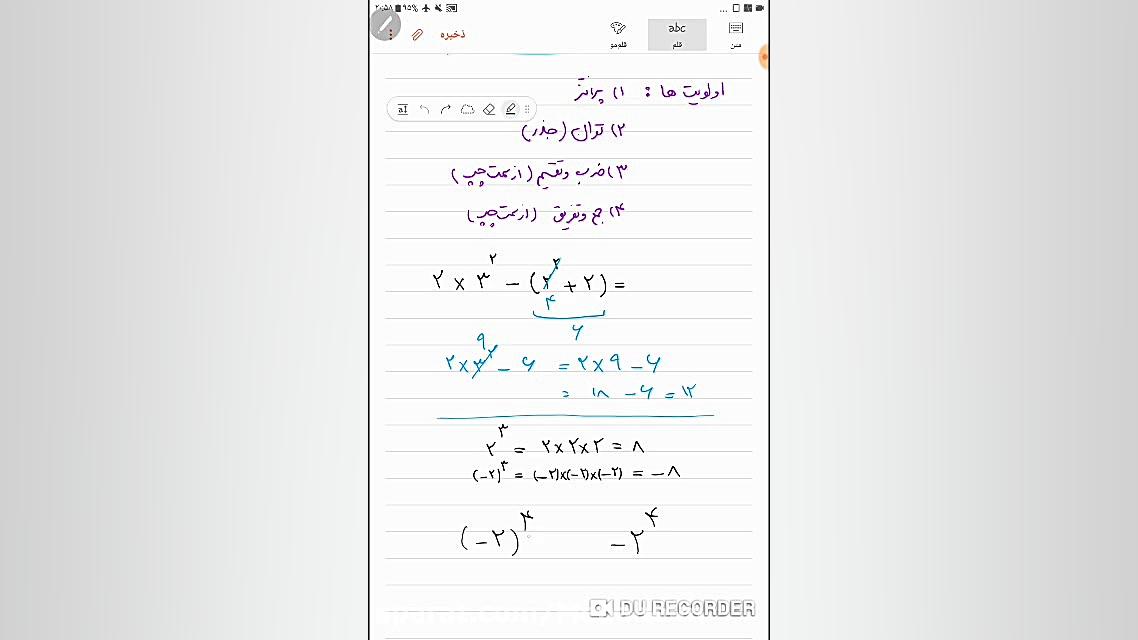 ۲۰:۵۸ ۹۵%
ذخیره
abc
قلم
قلم‌مو
متن
اولویت ها : ۱) پرانتز
۲) توان (جذر)
۳) ضرب و تقسیم (از سمت چپ)
۴) جمع و تفریق (از سمت چپ)
۲ × ۳^۲ − (۲^۲ + ۲) =
۴
۶
۹
۲×۳^۲ − ۶ = ۲×۹ − ۶
= ۱۸ − ۶ = ۱۲
۲^۳ = ۲×۲×۲ = ۸
(−۲)^۳ = (−۲)×(−۲)×(−۲) = −۸
(−۲)^۴ −۲^۴
DU RECORDER